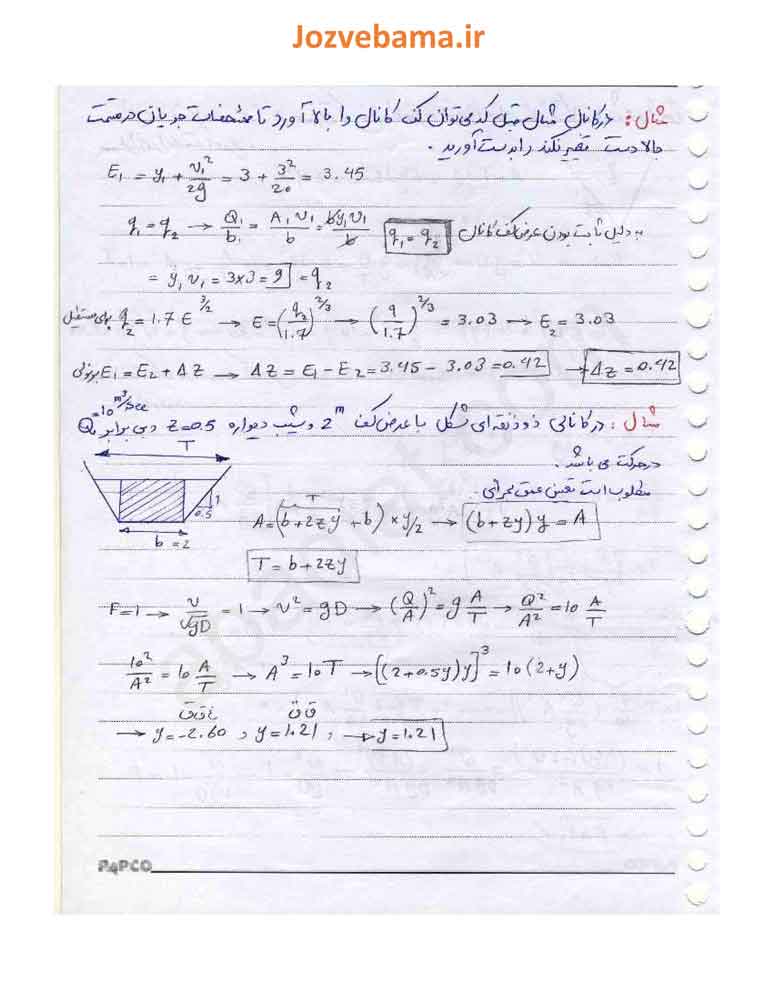 Jozvebama.ir
مثال: در کانال مثال قبل کف می توان کف کانال را بالا آورد تا مشخصات جریان در قسمت
بالادست تغییر نکند را بدست آورید.
E₁ = y₁ + v₁²/2g = 3 + 3²/20 = 3.45
q₁ = q₂ → Q₁/b₁ = A₁v₁/b = by₁v₁/b q₁ = q₂ به دلیل ثابت بودن عرض کف کانال
= y₁v₁ = 3×3 = 9 = q₂
مستطیل q₂ = 1.7 E^3/2 → E = (q₂/1.7)^2/3 → (9/1.7)^2/3 = 3.03 → E₂ = 3.03
E₁ = E₂ + ΔZ → ΔZ = E₁ - E₂ = 3.45 - 3.03 = 0.42 → ΔZ = 0.42
مثال: در کانالی ذوذنقه ای شکل با عرض کف 2m و شیب دیواره Z=0.5 دبی برابر Q=10 m³/sec
در حرکت می باشد.
مطلوب است تعیین عمق بحرانی.
T
1
0.5
b = 2
T
A = (b+2zy + b) × y/2 → (b+zy)y = A
T = b+2zy
F=1 → v/√gD = 1 → v² = gD → (Q/A)² = g A/T → Q²/A² = 10 A/T
10²/A² = 10 A/T → A³ = 10T → [(2+0.5y)y]³ = 10(2+y)
غ ق ق ق ق
→ y = -2.60 , y = 1.21 , → y = 1.21
PAPCO